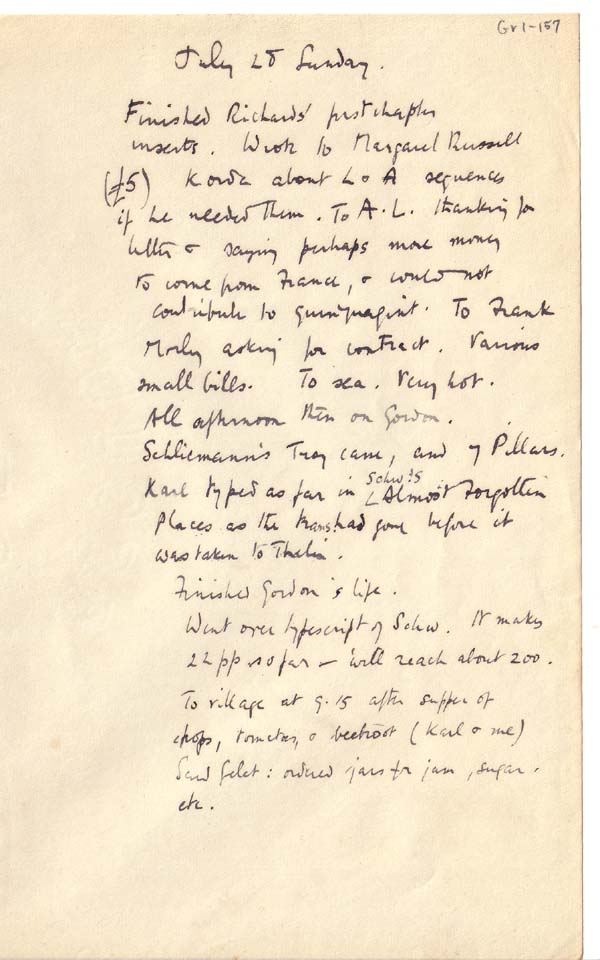 Gr1-157
July 28 Sunday.
Finished Richards' first chapter
inserts. Wrote to Margaret Russell
(£5) Korda about L o A sequences
if he needed them. To A.L. thanking for
letter & saying perhaps more money
to come from France, & could not
contribute to quinquagint. To Frank
Morley asking for contract. Various
small bills. To sea. Very hot.
All afternoon then on Gordon.
Schliemann's Troy came, and 7 Pillars.
Karl typed as far in Schw's Almost Forgotten
Places as the trans had gone before it
was taken to Thelia.
Finished Gordon's life.
Went over typescript of Schw. It makes
22 pp so far – will reach about 200.
To village at 9.15 after supper of
chops, tomatoes, & beetroot (Karl & me)
Gelat: ordered jars for jam, sugar.
etc.